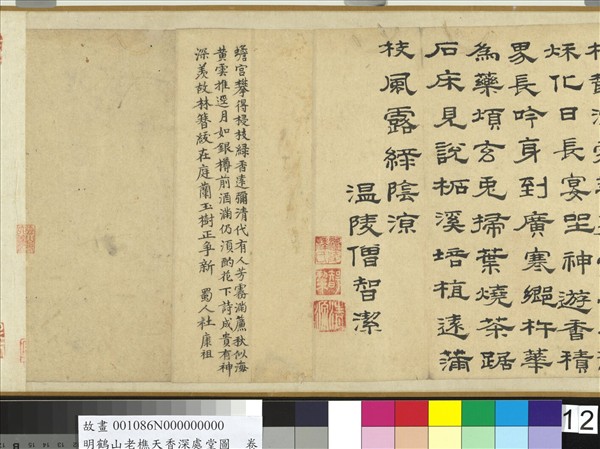 秌化日長宴坐神遊香積
界長吟身到廣寒鄉杵華
為藥煩玄兔掃葉燒茶踞
石床見說柘溪培植遠滿
枝風露綠陰凉
温陵僧智潔
蟾宮攀得桂枝綠香遠彌清代有人芳霧滿簾秋似海
黃雲堆逕月如銀樽前酒滿仍須酌花下詩成貴有神
深羡故林簪紱在庭蘭玉樹正爭新 蜀人杜康祖
故畫 001086N000000000
明鶴山老樵天香深處堂圖 卷
12